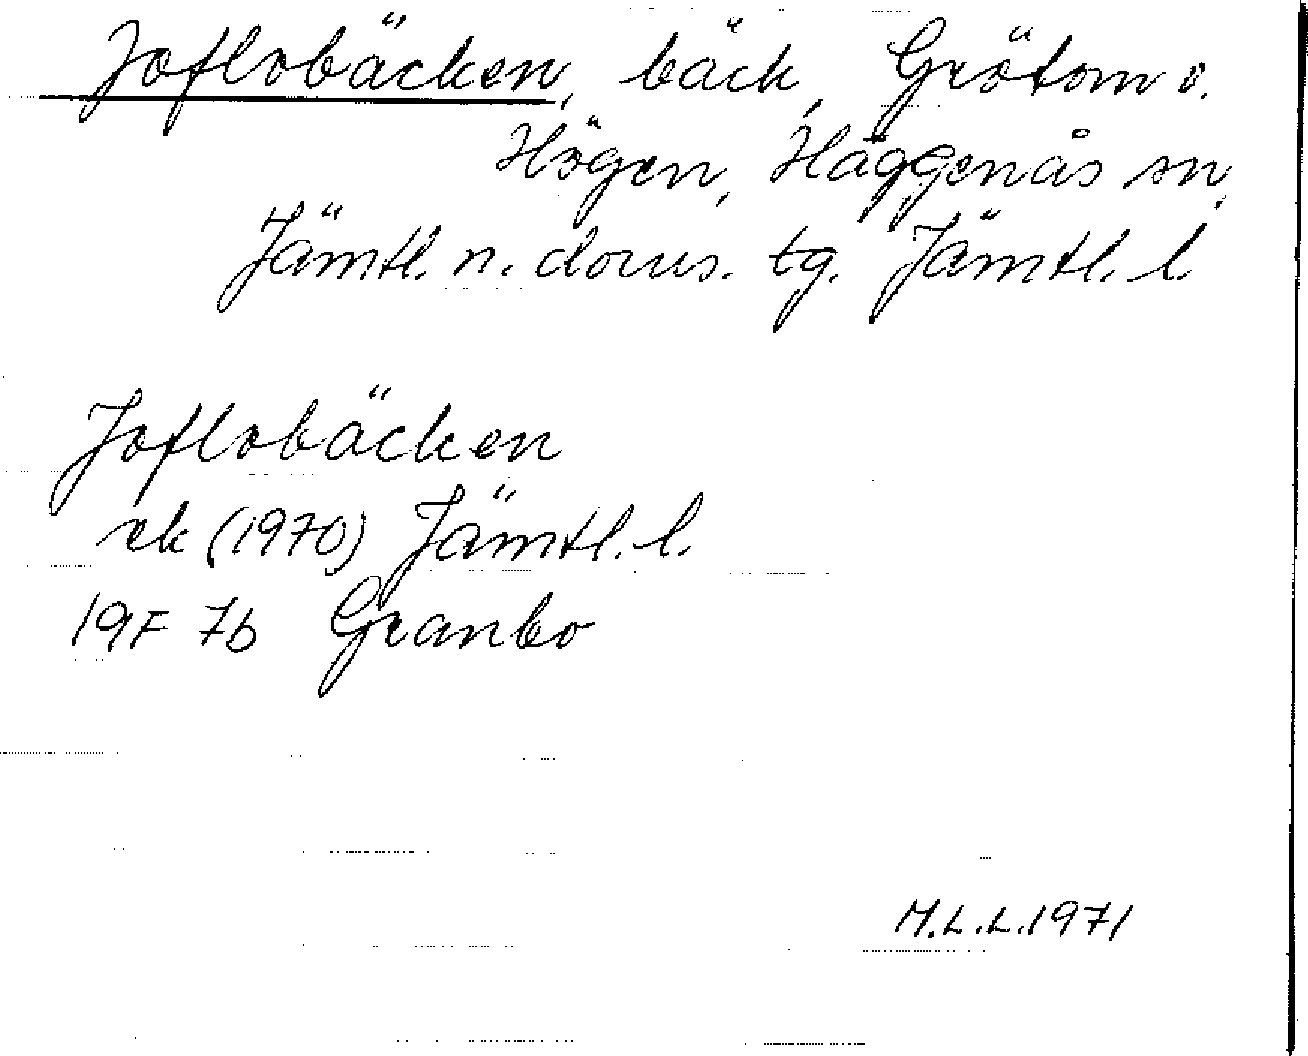 Joflobäcken, bäck, Grötom o.
Högen, Häggenås sn,
Jämtl. n. doms. tg. Jämtl. l
Joflobäcken
ek (1970) Jämtl. l.
19F 7b Granbo
M.L.L. 1971